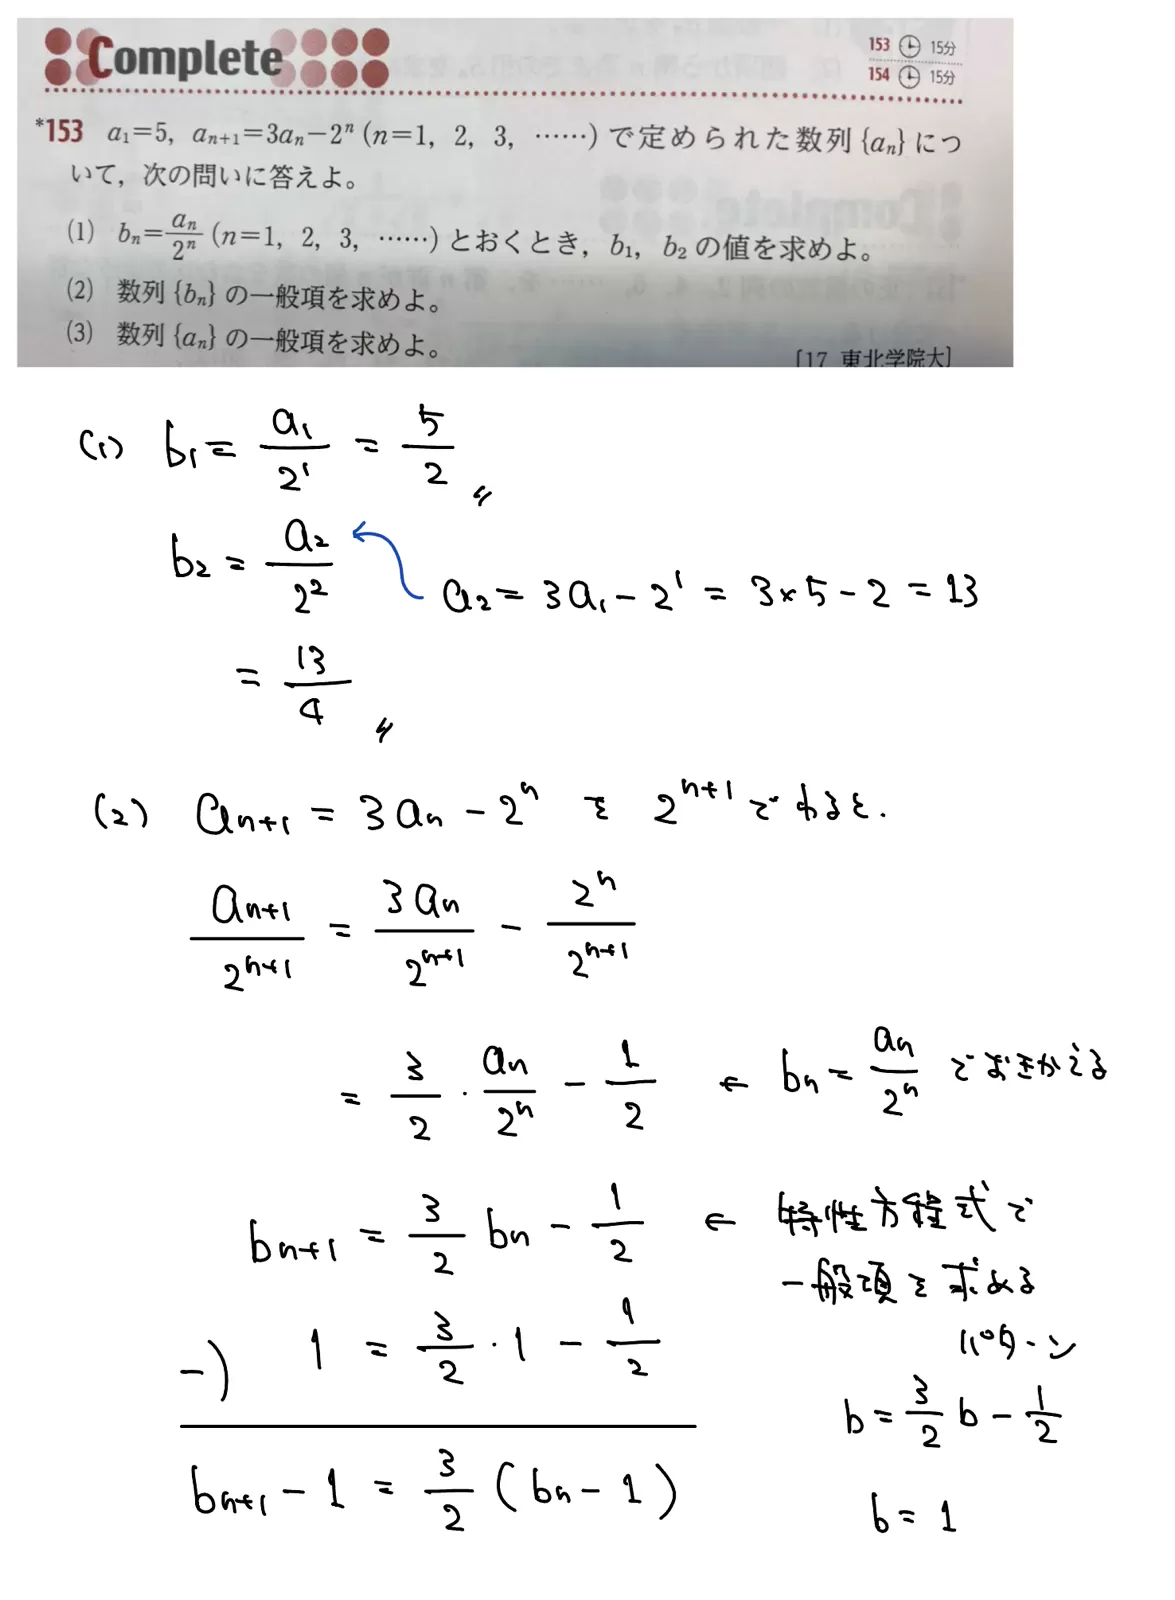 Complete
153 15分
154 15分
*153 a₁=5, aₙ₊₁=3aₙ−2ⁿ (n=1, 2, 3, ……) で定められた数列 {aₙ} につ
いて，次の問いに答えよ。
(1) bₙ=aₙ/2ⁿ (n=1, 2, 3, ……) とおくとき，b₁, b₂ の値を求めよ。
(2) 数列 {bₙ} の一般項を求めよ。
(3) 数列 {aₙ} の一般項を求めよ。
[17 東北学院大]
(1) b₁ = a₁/2¹ = 5/2 〃
b₂ = a₂/2²
a₂ = 3a₁ − 2¹ = 3×5 − 2 = 13
= 13/4 〃
(2) aₙ₊₁ = 3aₙ − 2ⁿ を 2ⁿ⁺¹ でわると.
aₙ₊₁/2ⁿ⁺¹ = 3aₙ/2ⁿ⁺¹ − 2ⁿ/2ⁿ⁺¹
= 3/2 · aₙ/2ⁿ − 1/2 ← bₙ = aₙ/2ⁿ でおきかえる
bₙ₊₁ = 3/2 bₙ − 1/2 ← 特性方程式で
一般項を求める
パターン
−) 1 = 3/2 · 1 − 1/2
b = 3/2 b − 1/2
bₙ₊₁ − 1 = 3/2 (bₙ − 1)
b = 1